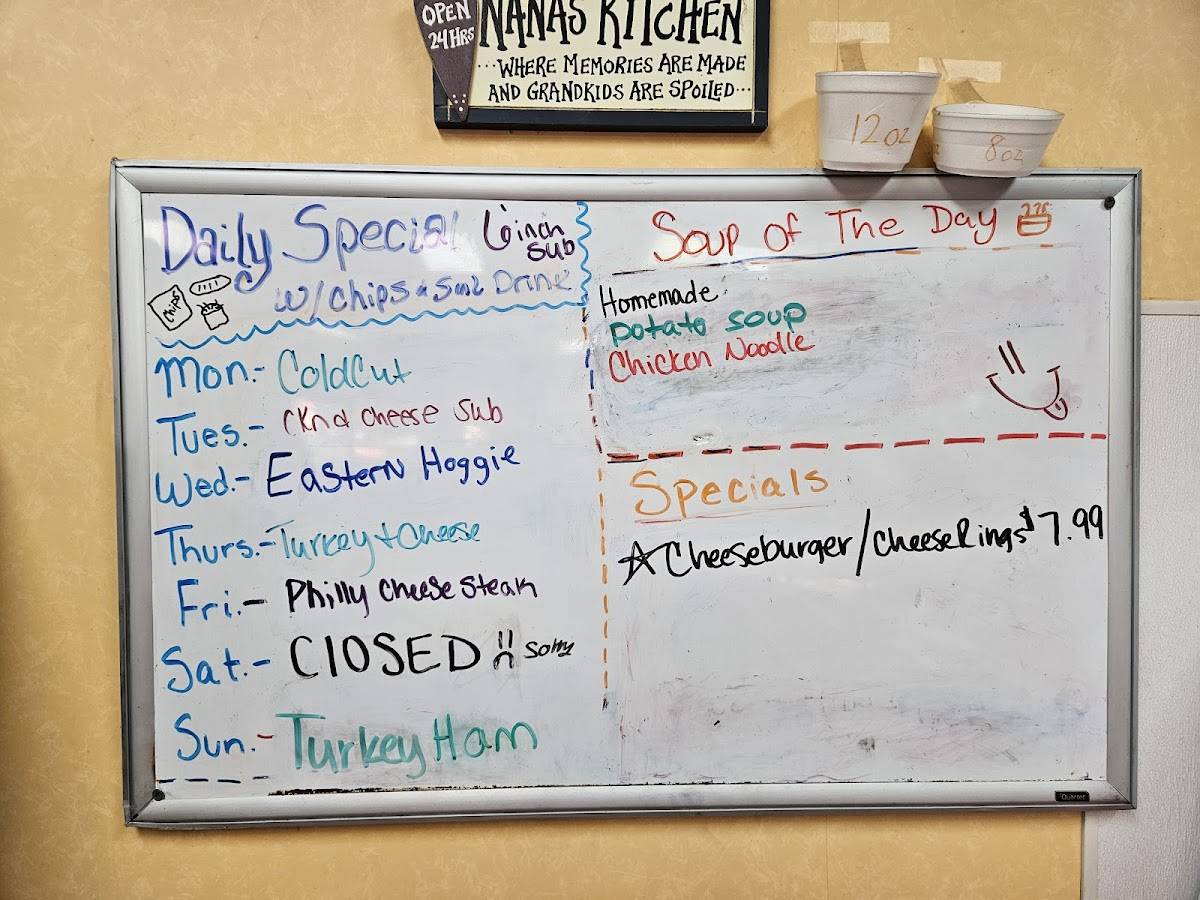 OPEN
24 HRS
NANAS KITCHEN
...WHERE MEMORIES ARE MADE
AND GRANDKIDS ARE SPOILED...
12 oz
8 oz
Daily Special 6 inch
sub
w/ chips & Small Drink
chips
Mon.- ColdCut
Tues.- CKn d cheese Sub
Wed.- Eastern Hoggie
Thurs.- Turkey + Cheese
Fri.- Philly Cheese Steak
Sat.- ClOSED Sorry
Sun.- Turkey Ham
Soup of The Day
Homemade
potato soup
Chicken Noodle
Specials
Cheeseburger/CheeseRings $7.99
Quartet